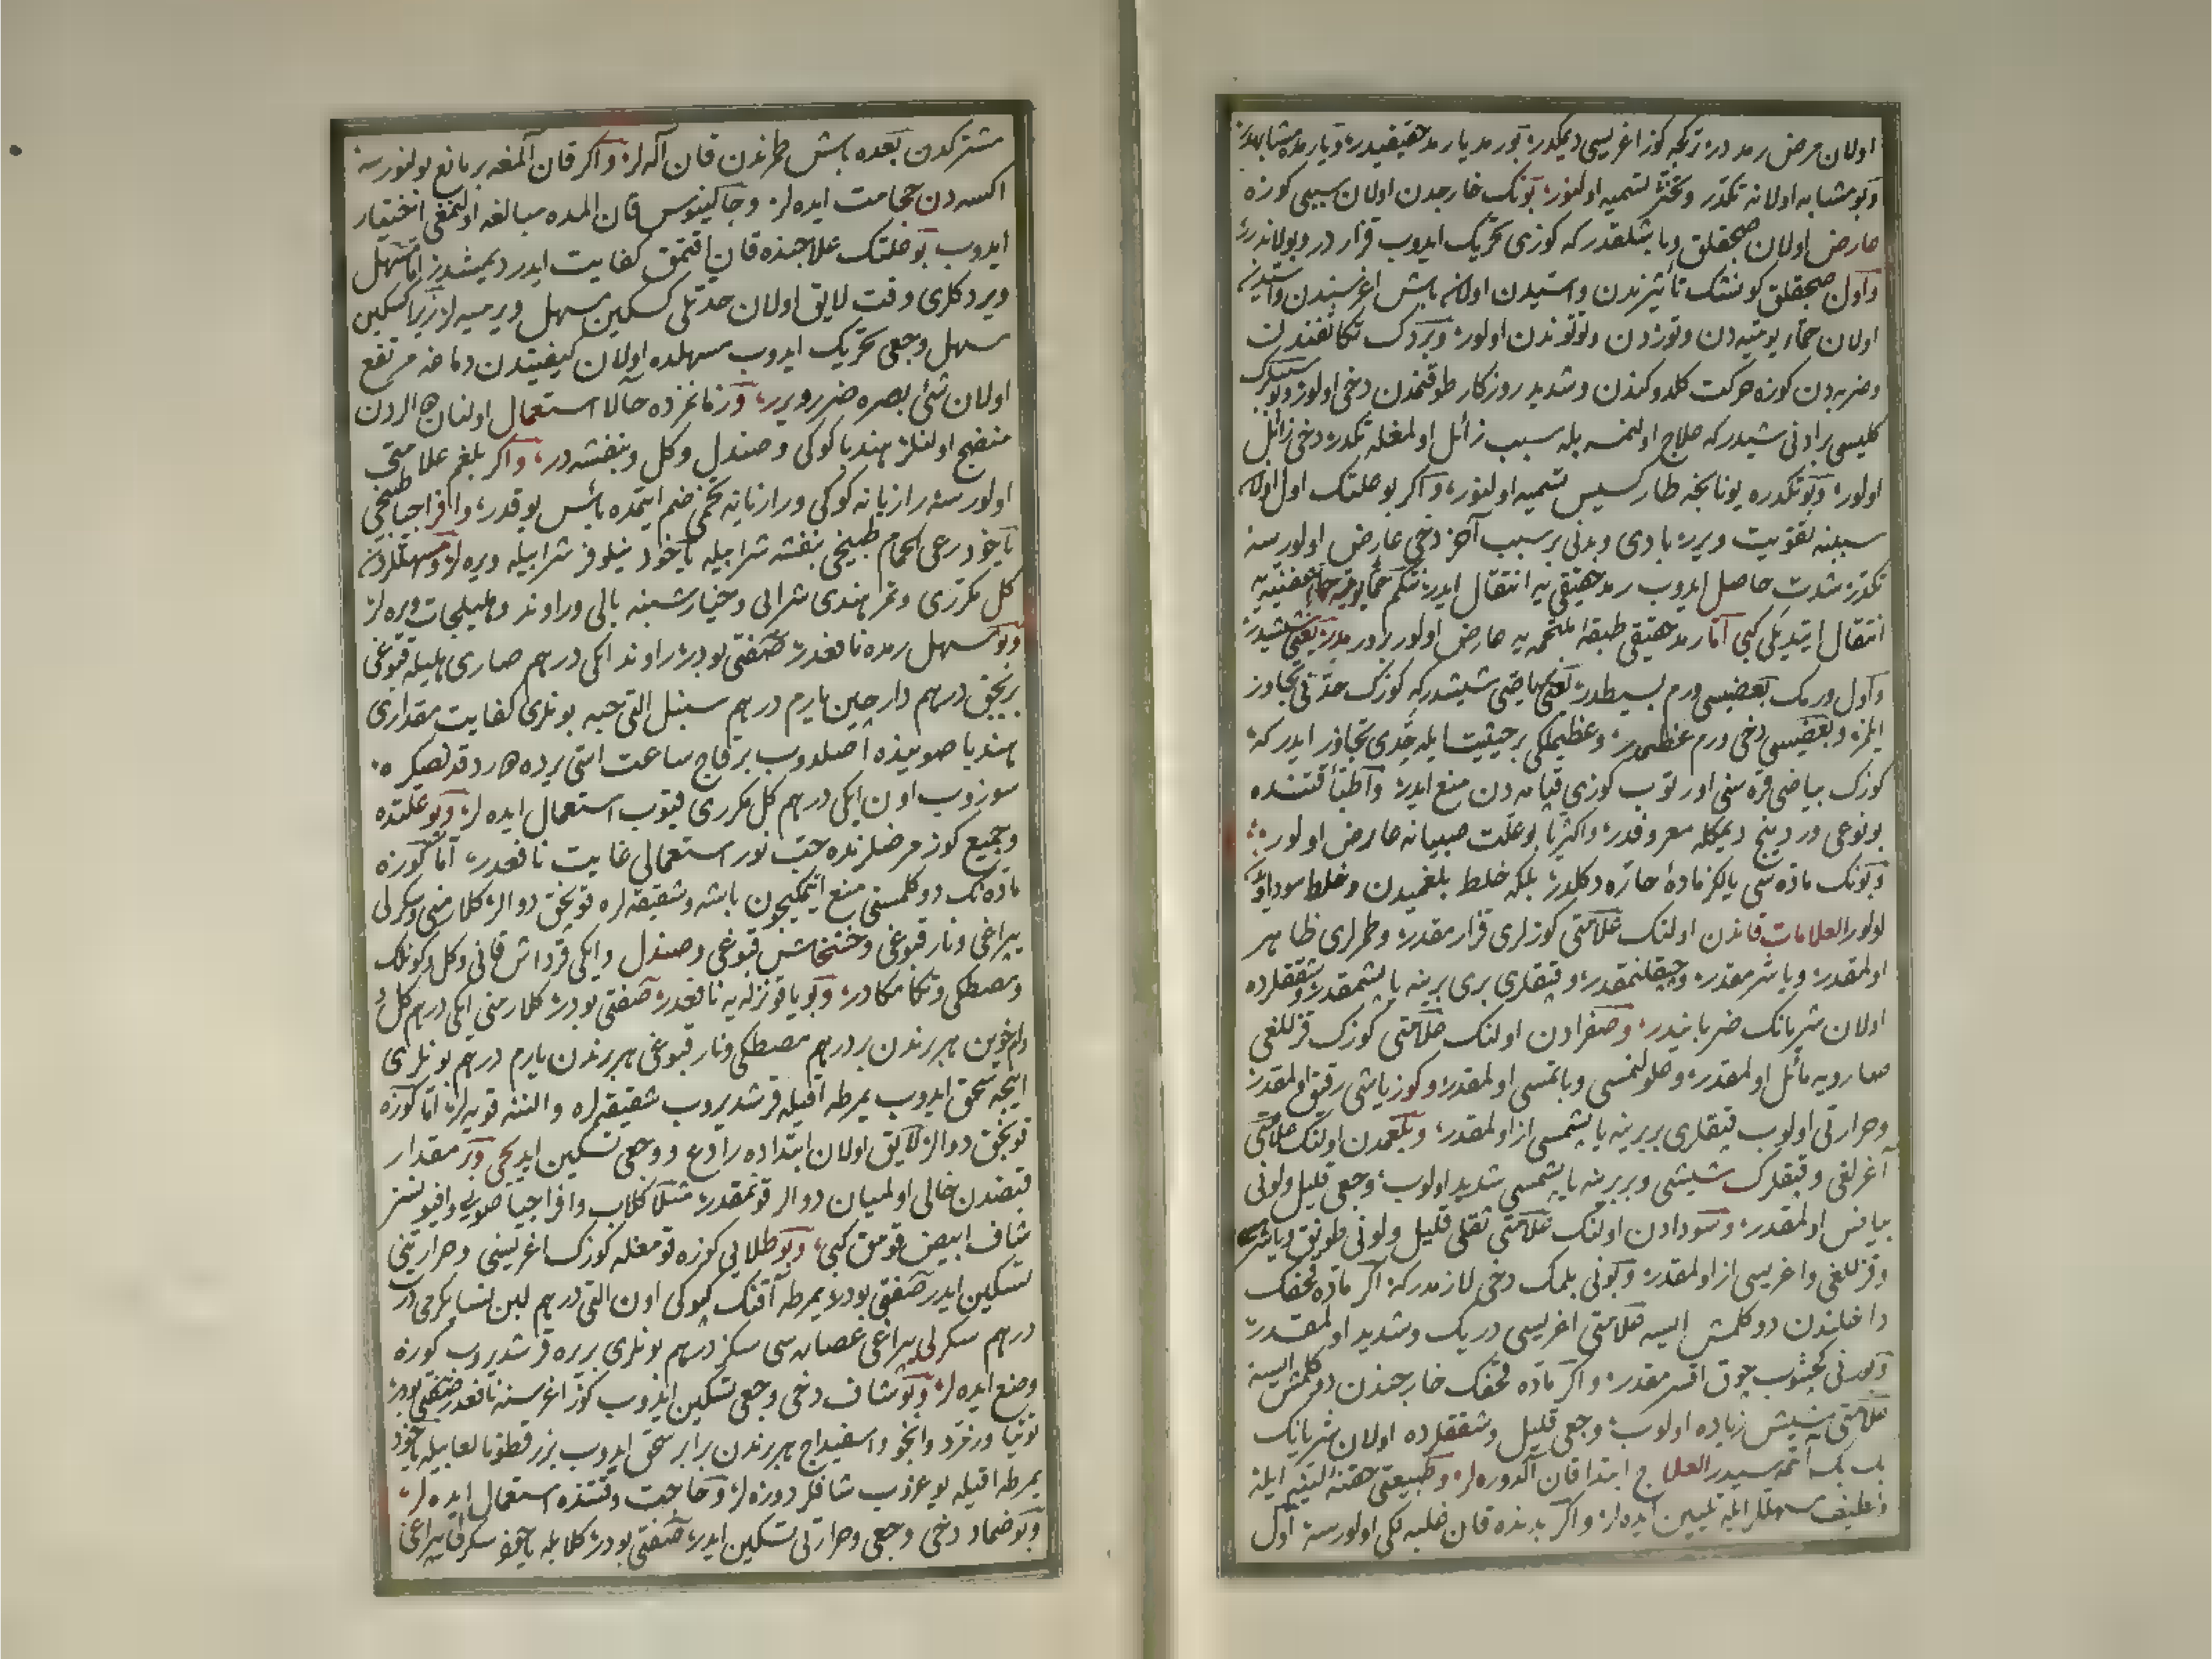 اولان مرض رمد در ترکجه کوز اغریسی دیمکدر بو رمد یا رمد حقیقیدر و یا رمده مشابهدر
و بو مشابه اولانه تکدر و تخثر تسمیه اولنور بونک خارجدن اولان سببی کوزه
عارض اولان صیجقلق و یا شلقدر که کوزی تحریک ایدوب قزار در و بولاندرر
و اول صیجقلق کونشک تأثیرندن و استیدن اولانه باش اغریسندن و استیدنه
اولان حماء یومیه دن و توزدن و توتوندن اولور و بردک تکاثفندن
و ضربه دن کوزه حرکت کلدوکندن و شدید روزکار طوقنمدن دخی اولور
کلیسی برادنی شیدر که علاج اولنمسه بله سبب زائل اولمغله تکدر دخی زائل
اولور و بو تکدره یونانجه طارکسیس تسمیه اولنور و اکر بو علتک اول اولان
سببنه تقویت ویرر بادی و بدنی بر سبب آخر دخی عارض اولورسه
تکدر شدت حاصل ایدوب رمد حقیقی یه انتقال ایدر
انتقال ایتدیکی کبی اما رمد حقیقی طبقۀ ملتحمه یه عارض اولور
و اول ورمک بعضیسی ورم بسیطدر یعنی بیاضی شیشدر که کوزک حدتی تجاوز
ایلمز و بعضیسی دخی ورم عظیمدر و عظیملکی بر حیثیت ایله حدی تجاوز ایدر که
کوزک بیاضی قره سنی اورتوب کوزی قپامه دن منع ایدر و اطبا قتنده
بو نوعی دردینج دیمکله معروفدر و اکثریا بو علت صبیانه عارض اولور
و بونک ماده سی یالکز مادۀ حاره دکلدر بلکه خلط بلغمیدن و خلط سوداوی
اولور العلامات قاندن اولنک علامتی کوزلری قزارمقدر و طمرلری ظاهر
اولمقدر و یاشرمقدر و چپقلنمقدر و قپقلری بری برینه یاپشمقدر و شقیقلرده
اولان شریانک ضربانیدر و صفرادن اولنک علامتی کوزک قزللغی
صارویه مائل اولمقدر و صولنمسی و باتمسی اولمقدر و کوز یاشی رقیق اولمقدر
و حرارتی اولوب قپقلری بربرینه یاپشمسی از اولمقدر و بلغمدن اولنک علامتی
آغرلغی و قپقلرک شیشی و بربرینه یاپشمسی شدید اولوب وجعی قلیل و لونی
بیاض اولمقدر و سودادن اولنک علامتی ثقلی قلیل و لونی
و قزللغی و اغریسی از اولمقدر و بونی بلمک دخی لازمدر که اکر ماده قحفک
داخلندن دوکلمش ایسه علامتی اغریسی دریک و شدید اولمقدر
و بورنی کجشوب چوق اقسرمقدر و اکر ماده قحفک خارجندن دوکلمش ایسه
علامتی شیش زیاده اولوب وجعی قلیل و شقیقلرده اولان شریانک
العلاج ابتدا قان آلدوره لر و طبیعتی حقنۀ لینه ایله
و خفیف مسهللر ایله تلیین ایده لر و اکر بدنده قان غلبه لکی اولورسه اول
مشترکدن بعده باش طمرندن قان آله لر و اکر قان آلمغه بر مانع بولنورسه
اکسه دن حجامت ایده لر و جالینوس قان المده مبالغه اولنمغی اختیار
ایدوب بو علتک علاجنده قان اقتمق کفایت ایدر دیمشدر اما مسهل
ویردکلری وقت لایق اولان حدتلی کسکین مسهل ویرمیه لر زیرا کسکین
مسهل وجعی تحریک ایدوب مسهلده اولان کیفیتدن دماغه مرتفع
اولان شئ بصره ضرر ویرر و زمانمزده حالا استعمال اولنان
منضج اولنلر هندبا کوکی و صندل و کل و بنفشه در و اکر بلغم علامتی
اولورسه رازیانه کوکی و رازیانه تخمی ضم ایتمده بأس یوقدر و افراجیا طبیخی
یاخود رعی الحمام طبیخی بنفشه شرابیله یاخود نیلوفر شرابیله ویره لر و مسهللردن
کل مکرری و تمر هندی شرابی و خیارشنبه بالی و راوند و هلیلجات ویره لر
و بو مسهل رمده نافعدر صفتی بودر راوند ایکی درهم صاری هلیله قبوغی
بربچق درهم دارچین یارم درهم سنبل التی حبه بونلری کفایت مقداری
هندبا صوینده اصلدوب برقاج ساعت استی یرده
سوزوب اون ایکی درهم کل مکرری قیوب استعمال ایده لر و بو علتده
و جمیع کوز مرضلرنده حب نور استعمالی غایت نافعدر اما کوزه
ماده نک دوکلمسنی منع ایتمکیچون باشه و شقیقه لره قونجق دوالر کلارمنی و سکرلی
یپراغی و نار قبوغی و خشخاش قبوغی و صندل و ایکی قرداش قانی و کل و کونلک
و مصطکی و تکامکادر و بو یاقو نزله یه نافعدر صفتی بودر کلارمنی ایکی درهم کل
دم اخوین هر برندن بر درهم مصطکی و نار قبوغی هر برندن یارم درهم بونلری
اینجه سحق ایدوب یمرطه اقیله قرشدیروب شقیقه لره و النه قویه لر اما کوزه
قونجق دوالر لایق اولان ابتداده رادع و وجعی تسکین ایدیجی و بر مقدار
قبضدن خالی اولمیان دوالر قونمقدر مثلا کلاب و افراجیا صویی و افیونسز
شاف ابیض قومق کبی و بو طلایی کوزه قومغله کوزک اغریسنی و حرارتنی
تسکین ایدر صفتی بودر یمرطه آقنک کپوکی اون التی درهم لبن نسا یکرمی درت
درهم سکرلی یپراغی عصاره سی سکز درهم بونلری بریره قرشدیروب کوزه
وضع ایده لر و بو شاف دخی وجعی تسکین ایدوب کوز اغریسنه نافعدر صفتی بودر
توتیا و زفرد و انجو و اسفیداج هر برندن برابر سحق ایدوب بزر قطونا لعابیله یاخود
یمرطه اقیله یوغروب شافلر دوزه لر و حاجت وقتنده استعمال ایده لر
و بو ضماد دخی وجعی و حرارتی تسکین ایدر صفتی بودر